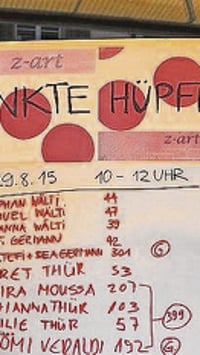 z-art
NKTE HÜPF
z-art
9.8.15 10-12 UHR
PHAN WÄLTI 44
UEL WÄLTI 47
NNA WÄLTI 39
GERMANN 42
STEFI + SEA GERMANN 301 G
RET THÜR 53
IRA MOUSSA 207
HANNA THÜR 103 399
LIE THÜR 57
ÖMI VERALDI 192 G